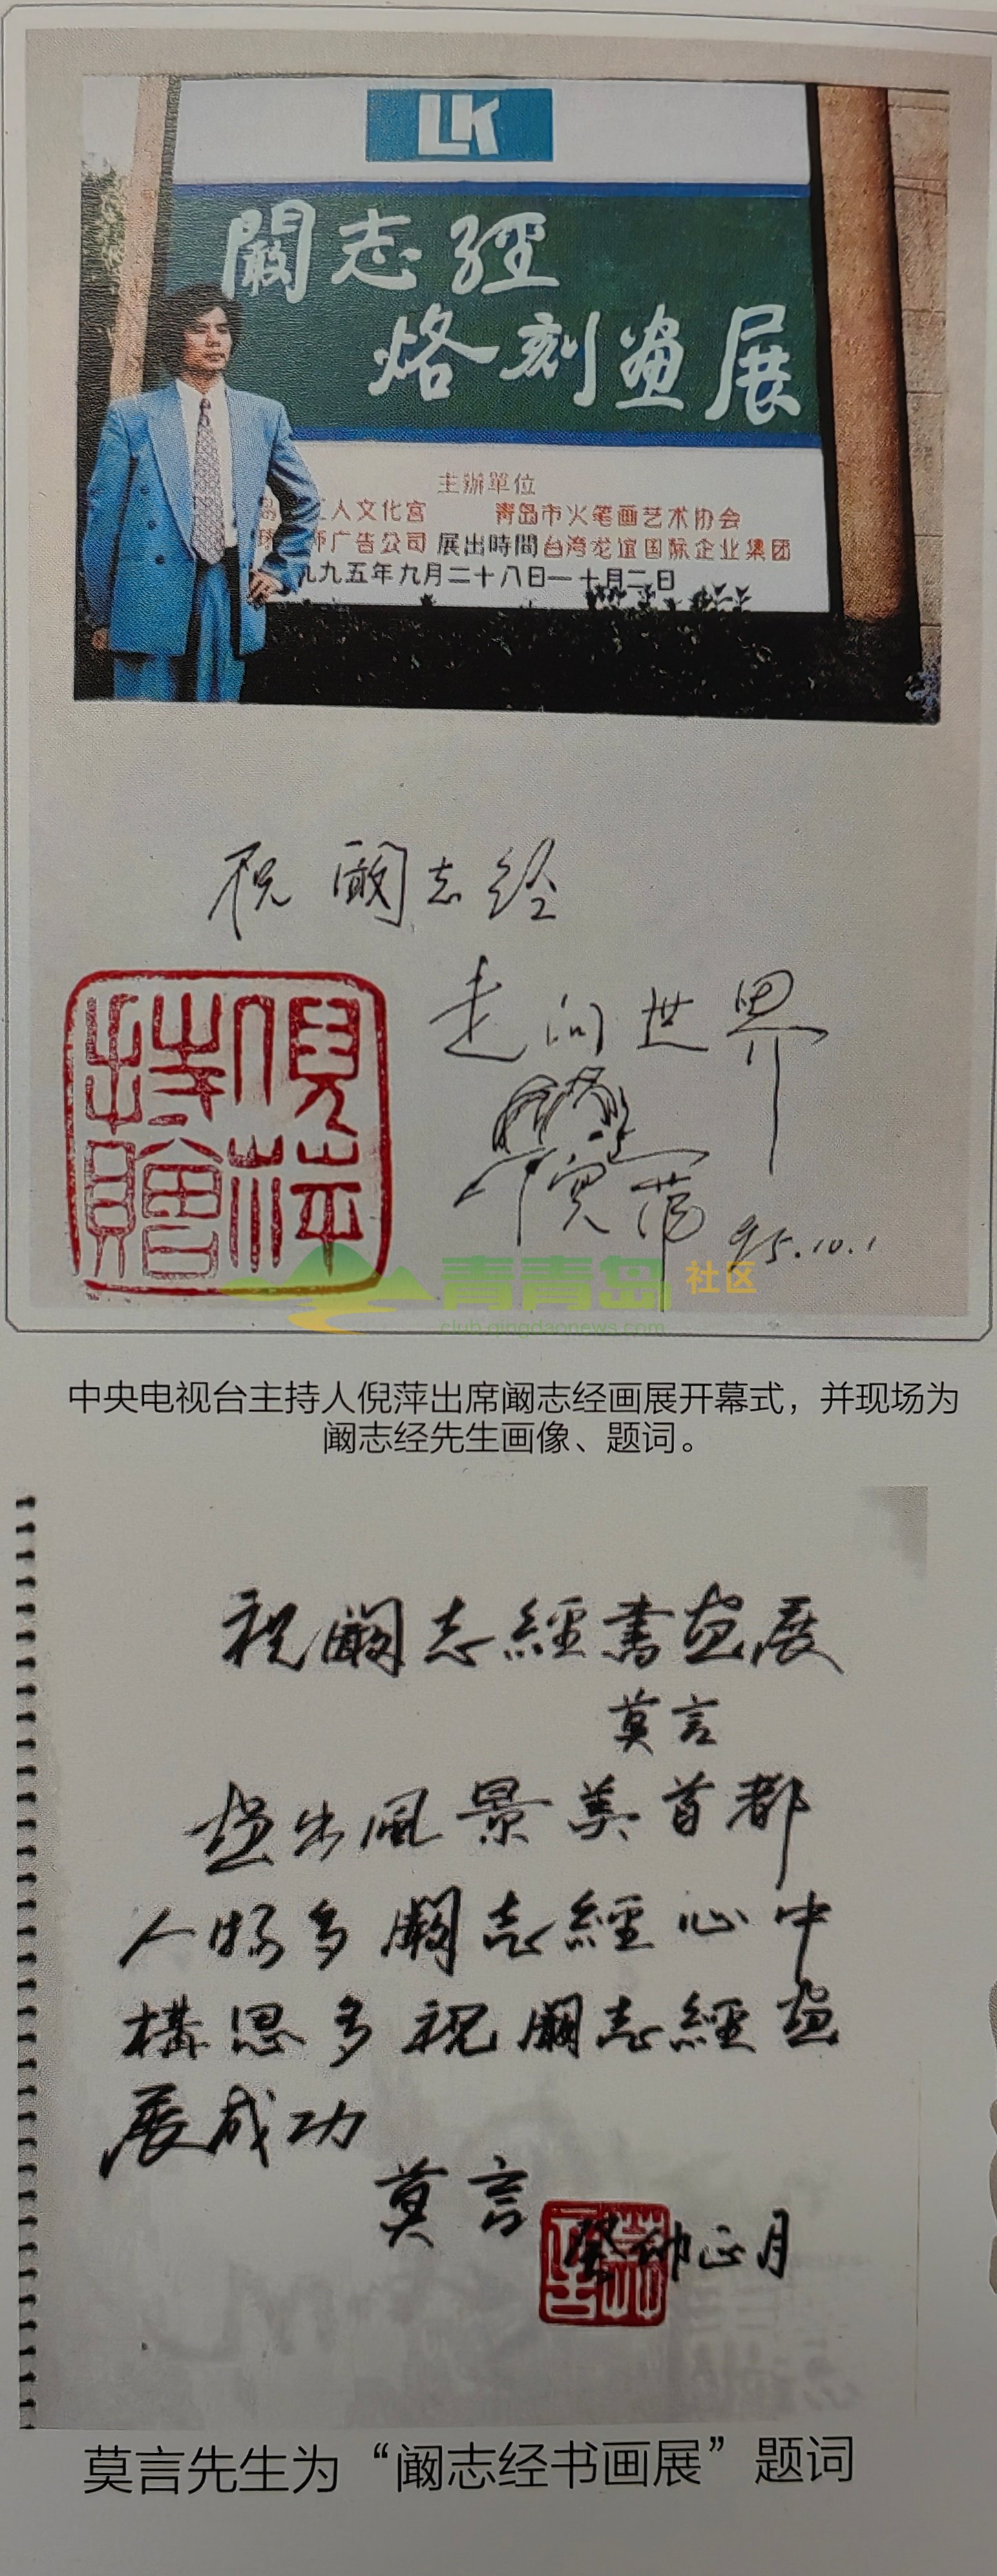 LK
闞志經
烙刻畫展
主辦單位
人文化宫 青岛市火笔画艺术协会
广告公司 展出時間 台湾龙谊国际企业集团
九九五年九月二十八日一十月二日
祝阚志经
走向世界
倪萍
95.10.1
倪萍
特贈
青青岛社区
club.qingdaonews.com
中央电视台主持人倪萍出席阚志经画展开幕式，并现场为
阚志经先生画像、题词。
祝闞志經書画展
莫言
画出風景美首都
人物多闞志經心中
構思多祝闞志經画
展成功
莫言
癸卯正月
莫言先生为“阚志经书画展”题词